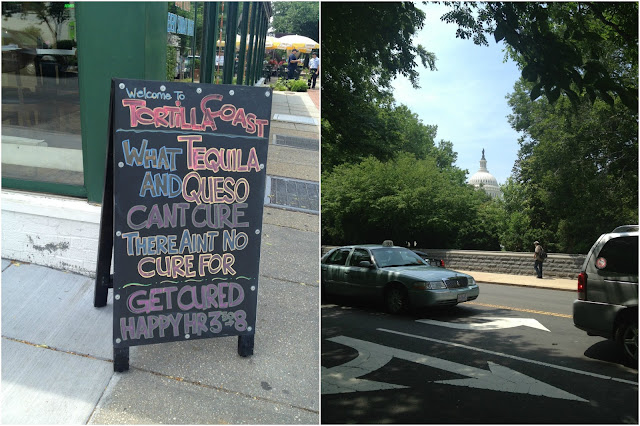 Welcome To
TORTILLA COAST
WHAT TEQUILA
AND QUESO
CANT CURE
THERE AINT NO
CURE FOR
GET CURED
HAPPY HR 3 to 8